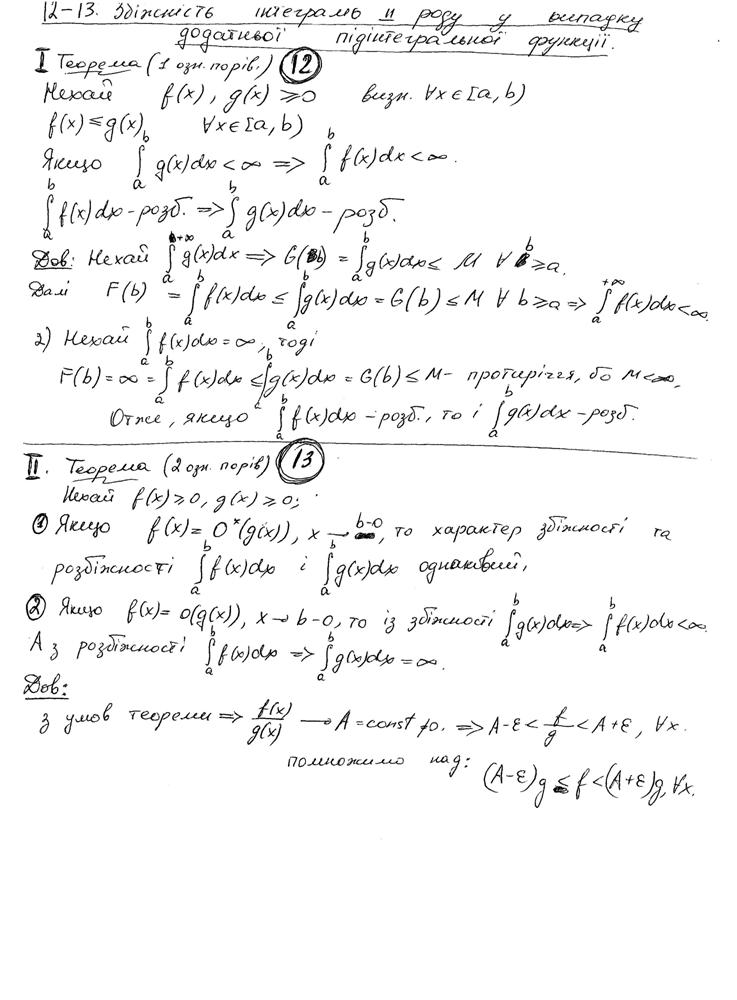 12-13. Збіжність інтеграль II роду у випадку
додатньої підінтегральної функції.
I Теорема (1 озн. порів.) 12
Нехай f(x), g(x) ≥ 0 визн. ∀x ∈ [a, b)
f(x) ≤ g(x), ∀x ∈ [a, b)
Якщо ∫_a^b g(x)dx < ∞ => ∫_a^b f(x)dx < ∞.
∫_a^b f(x)dx - розб. => ∫_a^b g(x)dx - розб.
Дов: Нехай ∫_a^{+∞} g(x)dx => G(b) = ∫_a^b g(x)dx ≤ M ∀ b ≥ a.
Далі F(b) = ∫_a^b f(x)dx ≤ ∫_a^b g(x)dx = G(b) ≤ M ∀ b ≥ a => ∫_a^{+∞} f(x)dx < ∞.
2) Нехай ∫_a^b f(x)dx = ∞, тоді
F(b) = ∞ = ∫_a^b f(x)dx ≤ ∫_a^b g(x)dx = G(b) ≤ M - протиріччя, бо M < ∞,
Отже, якщо ∫_a^b f(x)dx - розб., то і ∫_a^b g(x)dx - розб.
II. Теорема (2 озн. порів) 13
Нехай f(x) ≥ 0, g(x) ≥ 0;
1 Якщо f(x) = O*(g(x)), x → b-0, то характер збіжності та
розбіжності ∫_a^b f(x)dx і ∫_a^b g(x)dx однаковий,
2 Якщо f(x) = o(g(x)), x → b-0, то із збіжності ∫_a^b g(x)dx => ∫_a^b f(x)dx < ∞.
А з розбіжності ∫_a^b f(x)dx => ∫_a^b g(x)dx = ∞.
Дов:
з умов теореми => f(x)/g(x) → A = const ≠ 0. => A-ε < f/g < A+ε, ∀x.
помножимо над: (A-ε)g ≤ f < (A+ε)g, ∀x.